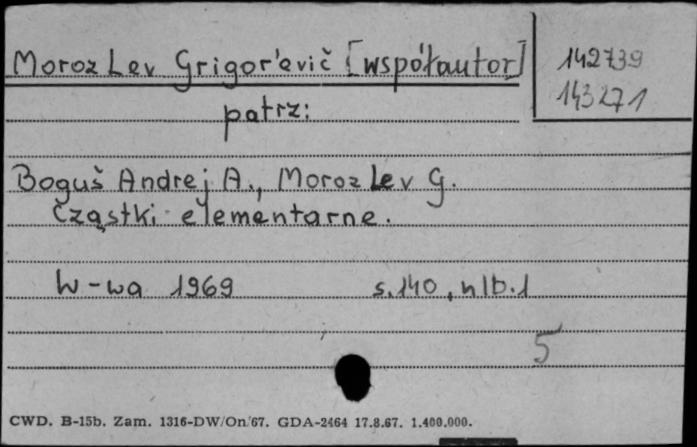 Moroz Lev Grigor'evič [współautor]
142739
143271
patrz:
Boguš Andrej A., Moroz Lev G.
Cząstki elementarne.
W-wa 1969 s.140, nlb.1
5
CWD. B-15b. Zam. 1316-DW/On/67. GDA-2464 17.8.67. 1.400.000.